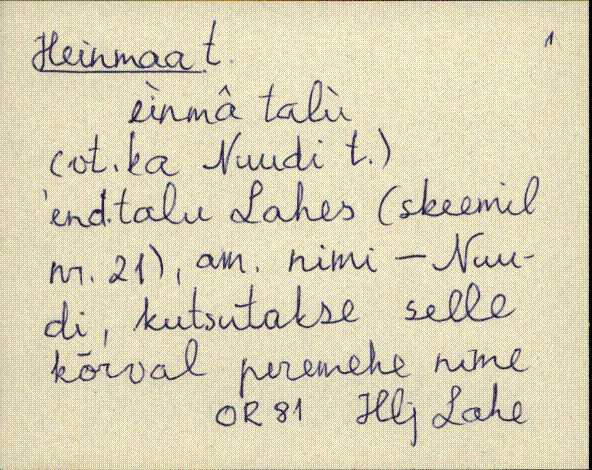 Heinmaa t. 1
èinmâ talù
(vt. ka Nuudi t.)
'end. talu Lahes (skeemil
nr. 21), am. nimi – Nuu-
di, kutsutakse selle
kõrval peremehe nime
OR 81 Hlj Lahe